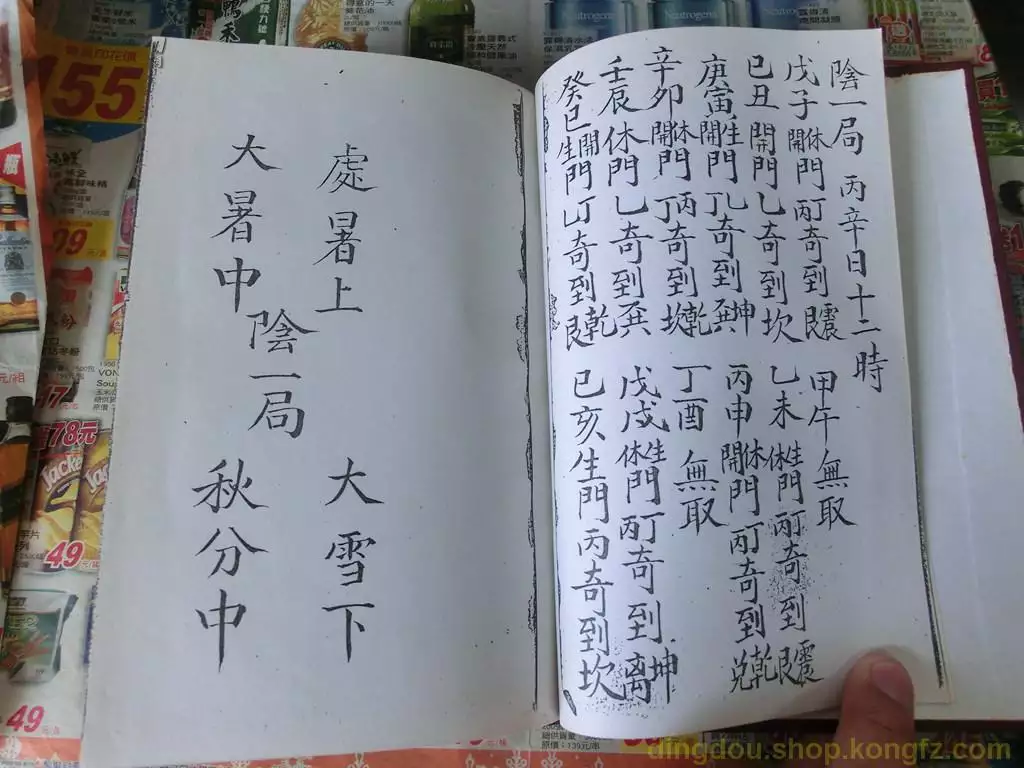 陰一局 丙辛日十二時
戊子休開門丙丁奇到震艮
己丑開門乙奇到坎
庚寅生開門乙丁奇到坤巽
辛卯休開門丙丁奇到乾坎
壬辰休門乙奇到巽
癸巳開生門乙丁奇到乾艮
甲午無取
乙未生休門丙丁奇到震艮
丙申休開門丙丁奇到乾兌
丁酉無取
戊戌生休門丙丁奇到坤离
己亥生門丙奇到坎
處暑上
大雪下
陰一局
大暑中
秋分中
155
Neutrogena
Neutrogena
Neutrogena
78元
49
49
dingdou.shop.kongfz.com